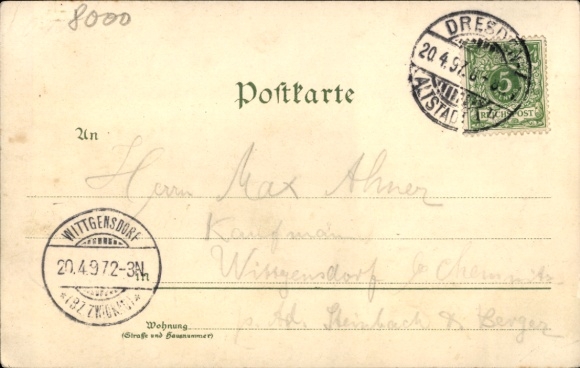 8000
DRESDEN
20.4.97.
ALTSTADT
5
REICHSPOST
Postkarte
An
Herrn Max Ahner
Kaufmann
Wittgensdorf b Chemnitz
p. Ad. Steinbach & Berger
WITTGENSDORF
20.4.97 2-3N.
(BZ. ZWICKAU)
Wohnung
(Straße und Hausnummer)